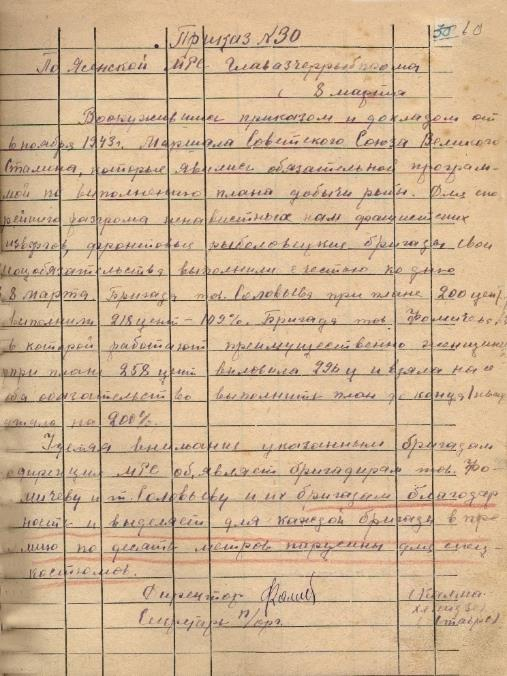 30 60
Приказ № 30
По Ясенской МРС Главазчеррыбпрома
8 марта
Вооружившись приказом и докладом от
6 ноября 1943 г. Маршала Советского Союза Великого
Сталина, которые явились обязательной програм-
мой по выполнению плана добычи рыбы. Для ско-
рейшего разгрома ненавистных нам фашистских
извергов, фронтовые рыболовецкие бригады свои
соцобязательства выполнили с честью ко дню
8 марта. Бригада тов. Соловьева при плане 200 цент.
выполнили 218 цент – 109%. Бригада тов. Фомичева
в которой работают преимущественно женщины
при плане 258 цент выловила 296 ц и взяла на се
бя обязательство выполнить план до конца
на 200%.
Уделяя внимание указанным бригадам
дирекция МРС объявляет бригадирам тов. Фо-
мичеву и т. Соловьеву и их бригадам благодар
ность и выделяет для каждой бригады в пре
мию по десять метров парусины для спец-
костюмов.
Директор
Секретарь п/орг.